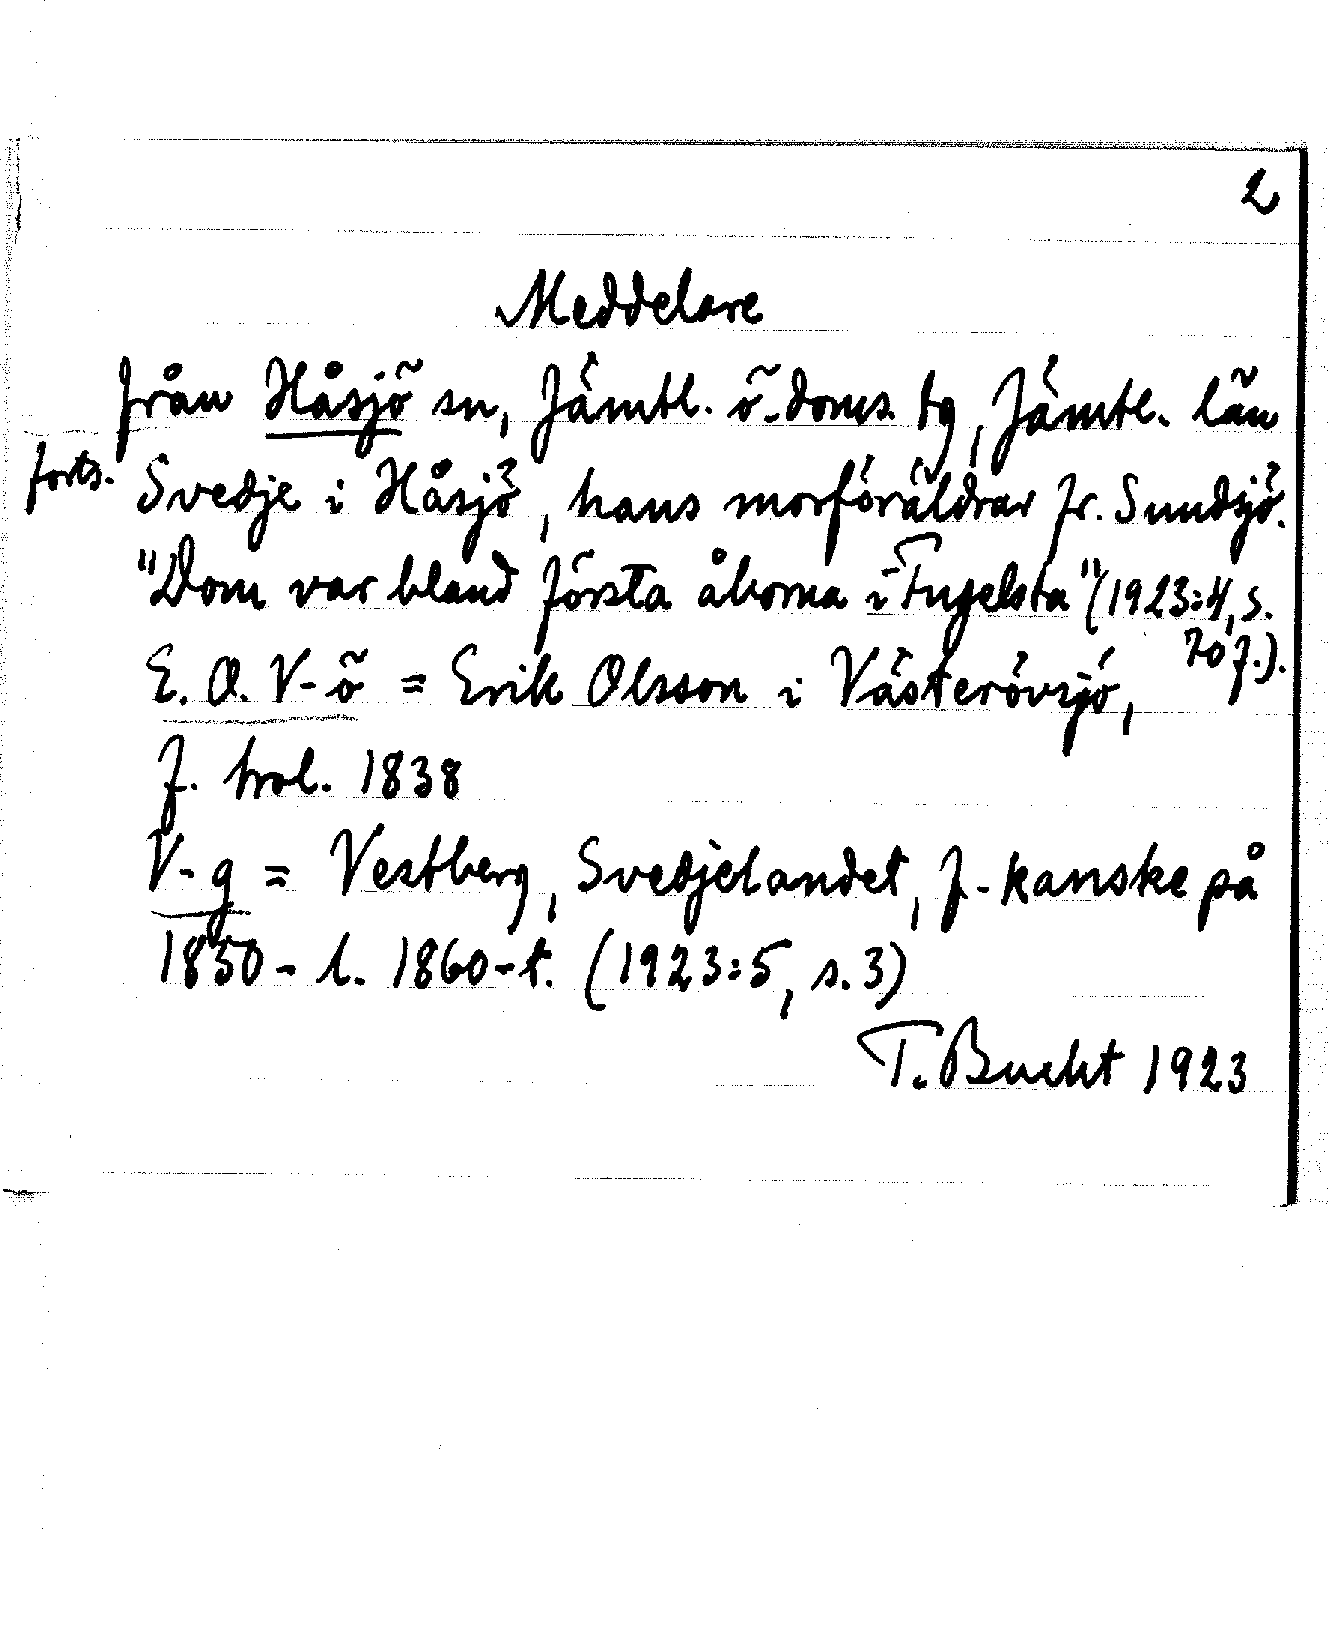 2
Meddelare
från Håsjö sn, Jämtl. ö. doms. tg, Jämtl. län
forts. Svedje i Håsjö, hans morföräldrar fr. Sundsjö.
"Dom var bland första åborna i Fugelsta" (1923:4, s.
70 f.).
E. O. V-ö = Erik Olsson i Västerövsjö,
f. trol. 1838
V-g = Vestberg, Svedjelandet, f. kanske på
1850- l. 1860-t. (1923:5, s. 3)
T. Bucht 1923